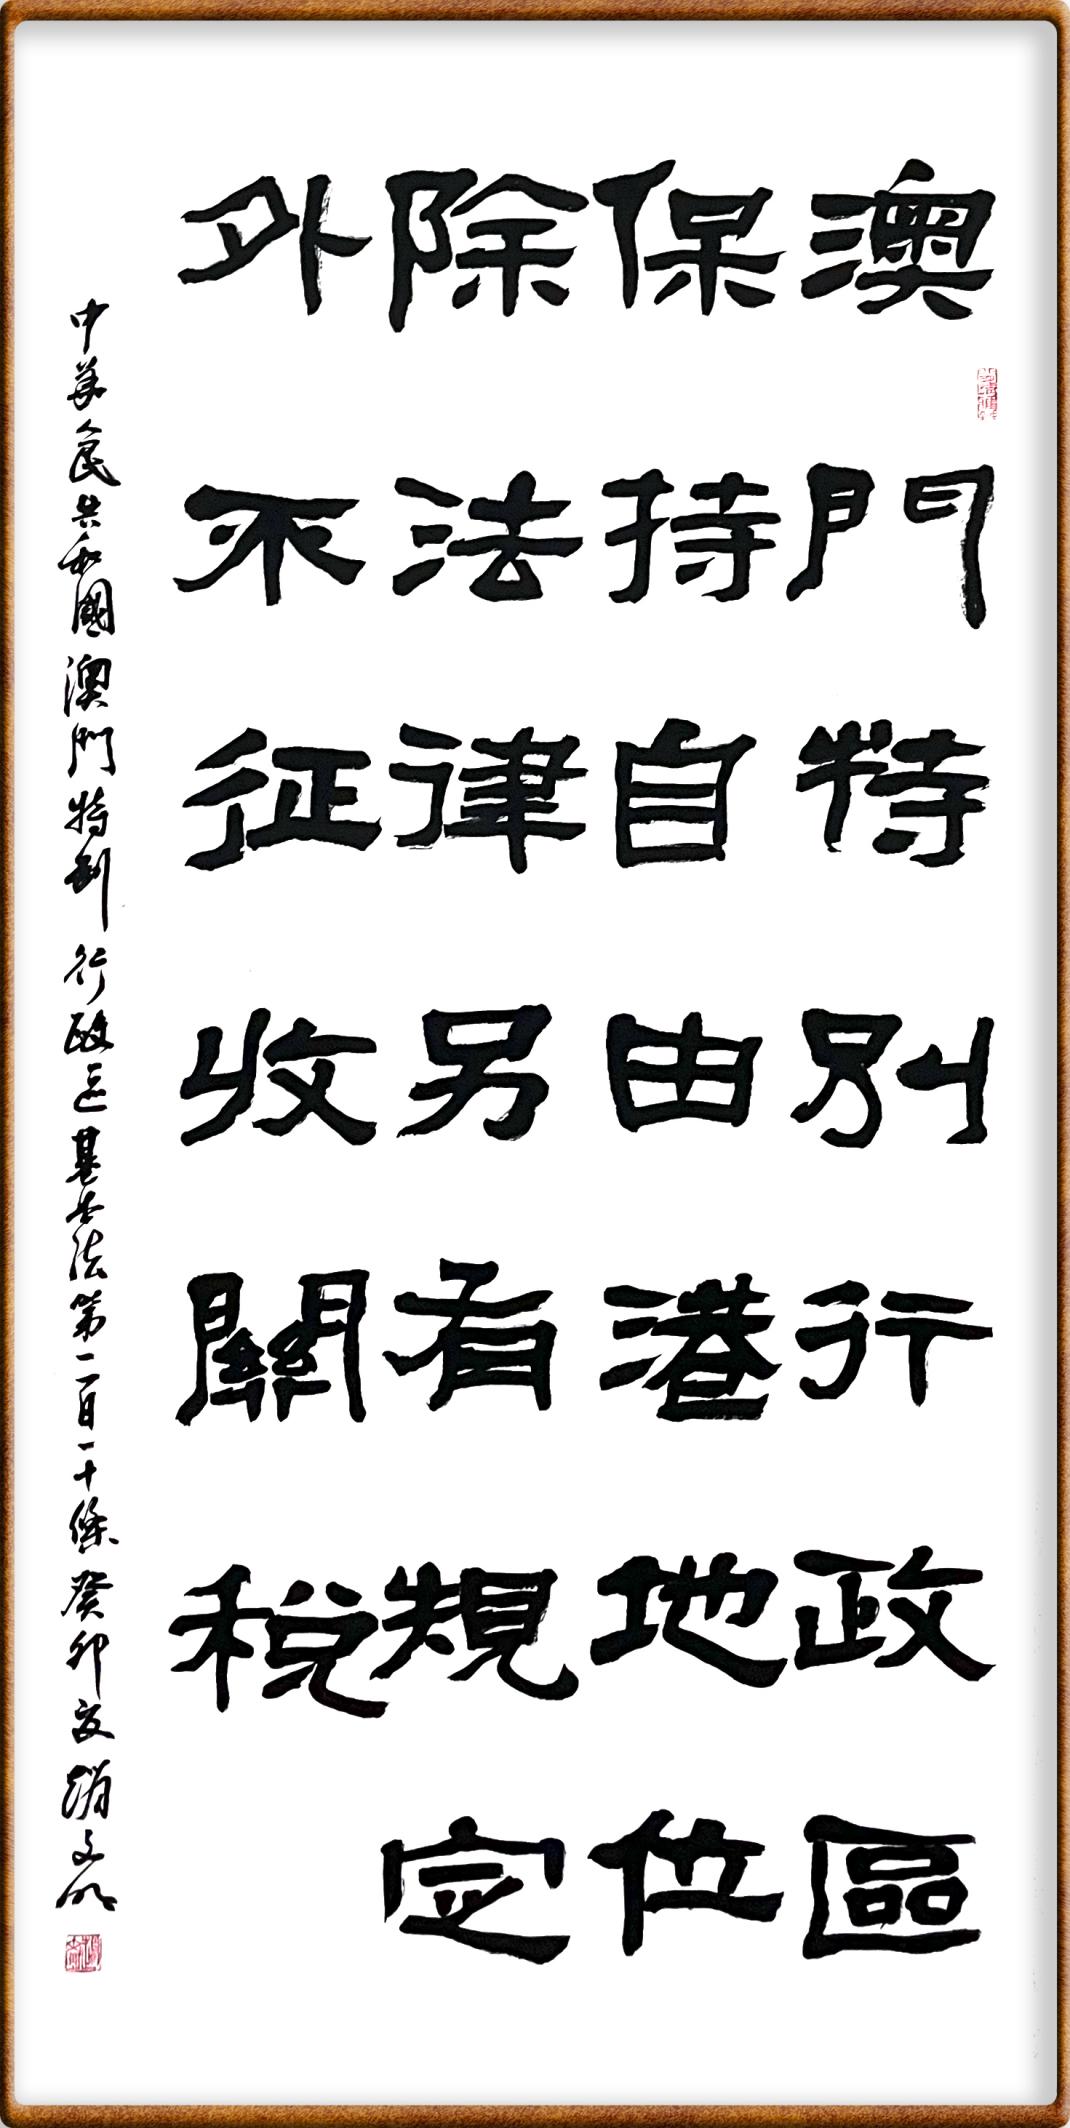 澳門特別行政區
保持自由港地位
除法律另有規定
外不征收關稅
中華人民共和國澳門特別行政區基本法第一百一十條 癸卯夏 文明